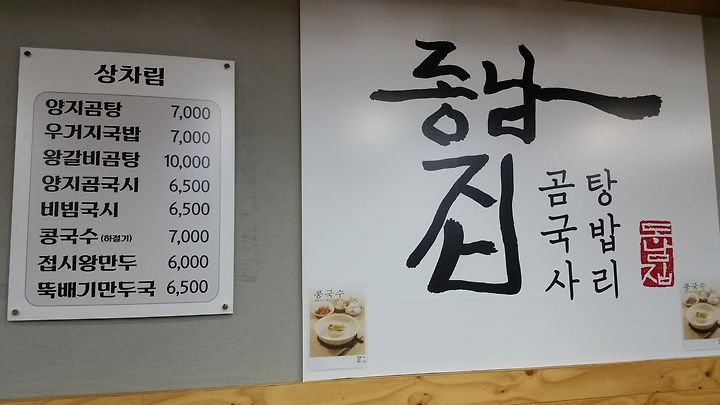 상차림
양지곰탕 7,000
우거지국밥 7,000
왕갈비곰탕 10,000
양지곰국시 6,500
비빔국시 6,500
콩국수 (하절기) 7,000
접시왕만두 6,000
뚝배기만두국 6,500
중남집
곰탕
국밥
사리
콩국수
콩국수